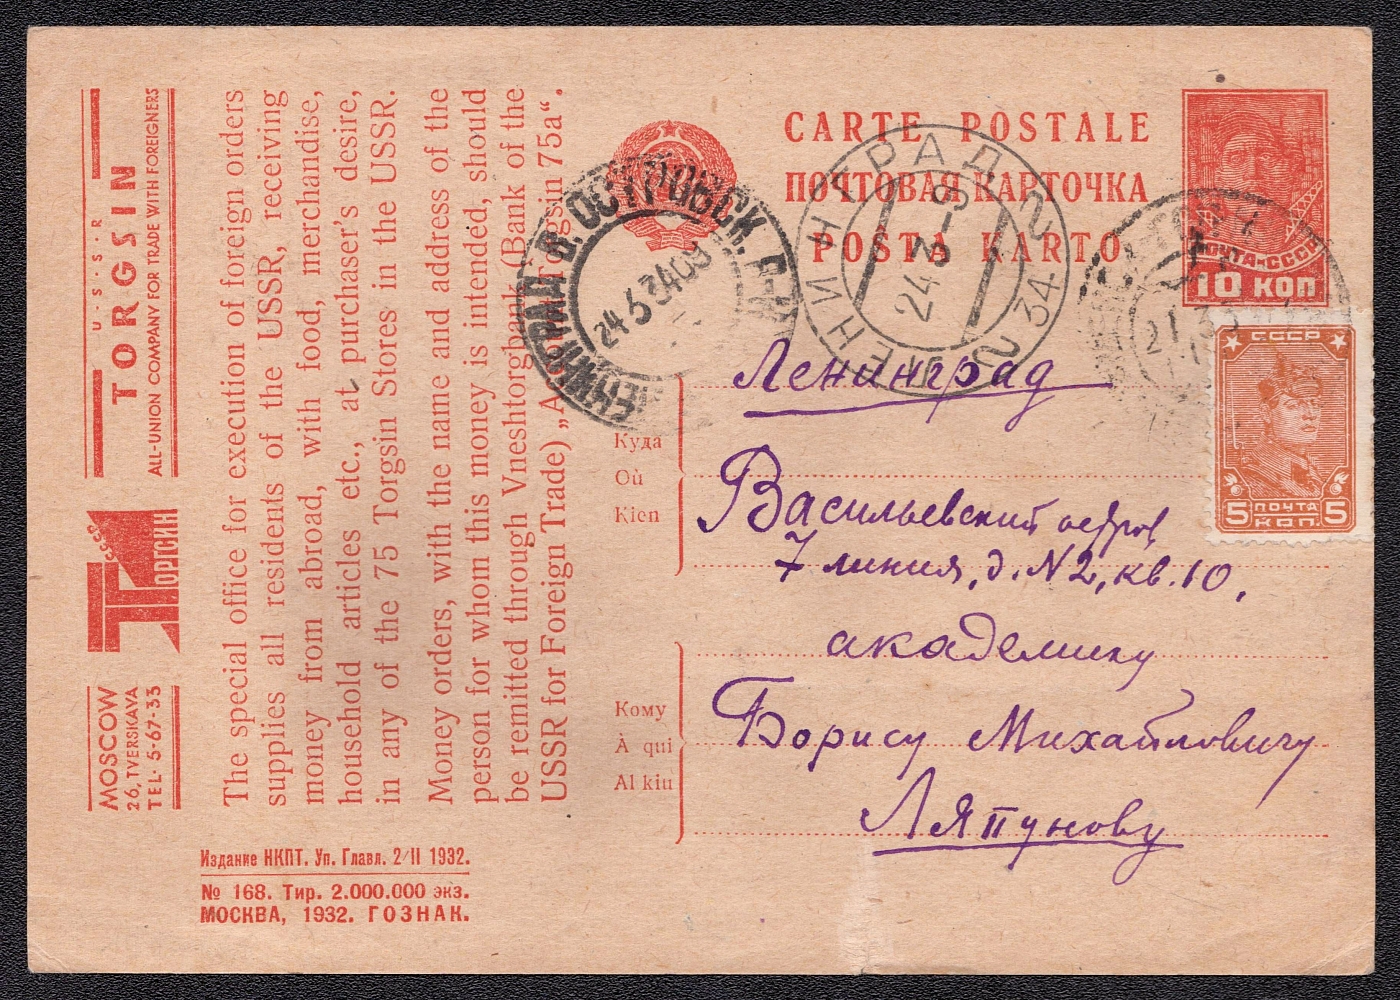 U·S·S·R
TORGSIN
ALL-UNION COMPANY FOR TRADE WITH FOREIGNERS
СССР
ТОРГСИН
MOSCOW
26, TVERSKAYA
TEL. 5-67-33
The special office for execution of foreign orders
supplies all residents of the USSR, receiving
money from abroad, with food, merchandise,
household articles etc., at purchaser's desire,
in any of the 75 Torgsin Stores in the USSR.
Money orders, with the name and address of the
person for whom this money is intended, should
be remitted through Vneshtorgbank (Bank of the
USSR for Foreign Trade) „Account Torgsin 75a“.
Издание НКПТ. Уп. Главл. 2/II 1932.
№ 168. Тир. 2.000.000 экз.
МОСКВА, 1932. ГОЗНАК.
CARTE POSTALE
ПОЧТОВАЯ КАРТОЧКА
POŜTA KARTO
ПОЧТА·СССР
10 КОП
СССР
5 ПОЧТА КОП. 5
ЛЕНИНГРАД В. ОСТРОВСК.
24 3 34 09
ЛЕНИНГРАД 2
24 3 -9
34
2
21 3
Куда
Où
Kien
Ленинград
Васильевский остров
7 линия, д. N2, кв. 10,
Кому
À qui
Al kiu
академику
Борису Михайловичу
Ляпунову